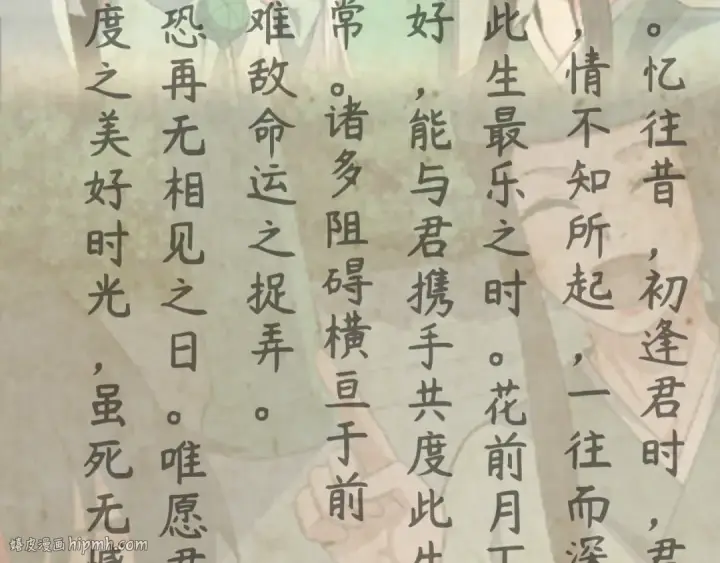 。忆往昔，初逢君时，君
，情不知所起，一往而深
此生最乐之时。花前月下
好，能与君携手共度此生
常。诸多阻碍横亘于前
难敌命运之捉弄。
恐再无相见之日。唯愿君
度之美好时光，虽死无憾
嬉皮漫画 hipmh.com